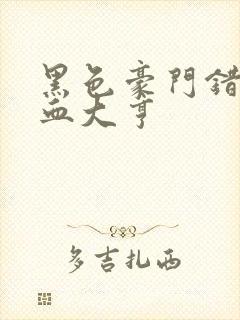 黑色豪門錯
血大亨
多吉扎西